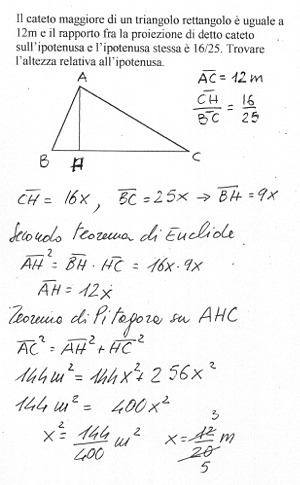 Il cateto maggiore di un triangolo rettangolo è uguale a
12m e il rapporto fra la proiezione di detto cateto
sull'ipotenusa e l'ipotenusa stessa è 16/25. Trovare
l'altezza relativa all'ipotenusa.
A
B
H
C
AC = 12 m
CH/BC = 16/25
CH = 16x, BC = 25x → BH = 9x
Secondo teorema di Euclide
AH² = BH · HC = 16x · 9x
AH = 12x
Teorema di Pitagora su AHC
AC² = AH² + HC²
144 m² = 144x² + 256x²
144 m² = 400x²
x² = 144/400 m² x = 12/20 m
3
5